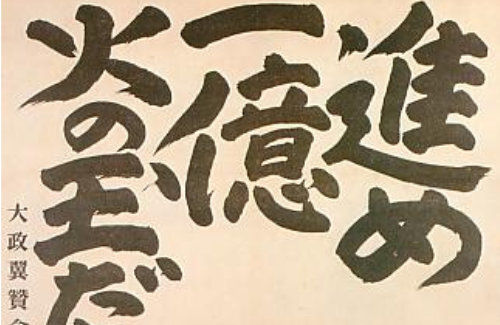 進め
一億
火の玉だ
大政翼賛会